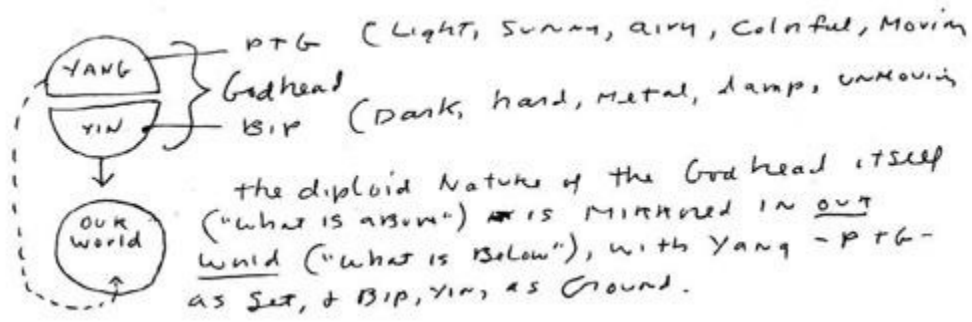 YANG
PTG (Light, Sunny, airy, Colorful, Moving
Godhead
YIN
BIP (Dark, hard, metal, damp, unmoving
the diploid Nature of the Godhead itself
OUR World
("what is above") is mirrored in our
world ("what is Below"), with Yang - PTG -
as Set, & Bip, Yin, as Ground.